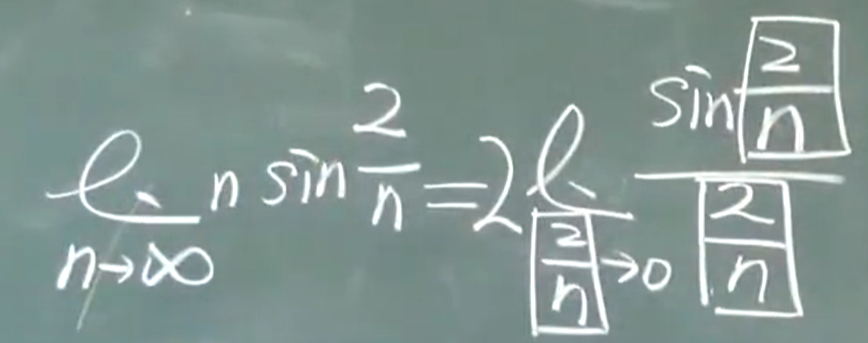 lim_{n→∞} n sin 2/n = 2 lim_{2/n→0} (sin 2/n)/(2/n)